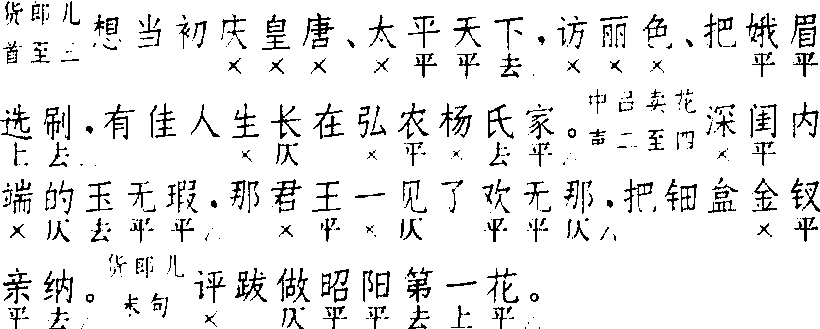 货郎儿首至三 想当初庆皇唐、太平天下,访丽色、把娥眉
× × × × 平 平 去 × × × 平 平
选刷,有佳人生长在弘农杨氏家。中吕卖花声二至四 深闺内
上 去 × 仄 × 平 × 去 平 × 平
端的玉无瑕,那君王一见了欢无那,把钿盒金钗
× 仄 去 平 平 × 平 × 仄 平 平 仄 × 平
亲纳。货郎儿末句 评跋做昭阳第一花。
平 去 × 仄 平 平 去 上 平